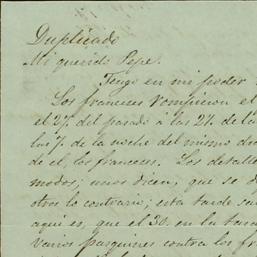 Duplicado
Mi querido Pepe.
Tengo en mi poder
Los franceses rompieron el
el 27. del pasado á las 2½. de la
las 7. de la noche del mismo dia
de el, los franceses. Los detalles
modos; unos dicen, que se d
otro lo contrario; esta tarde
aqui es, que el 30. en la tarde
varios pasquines contra los fr